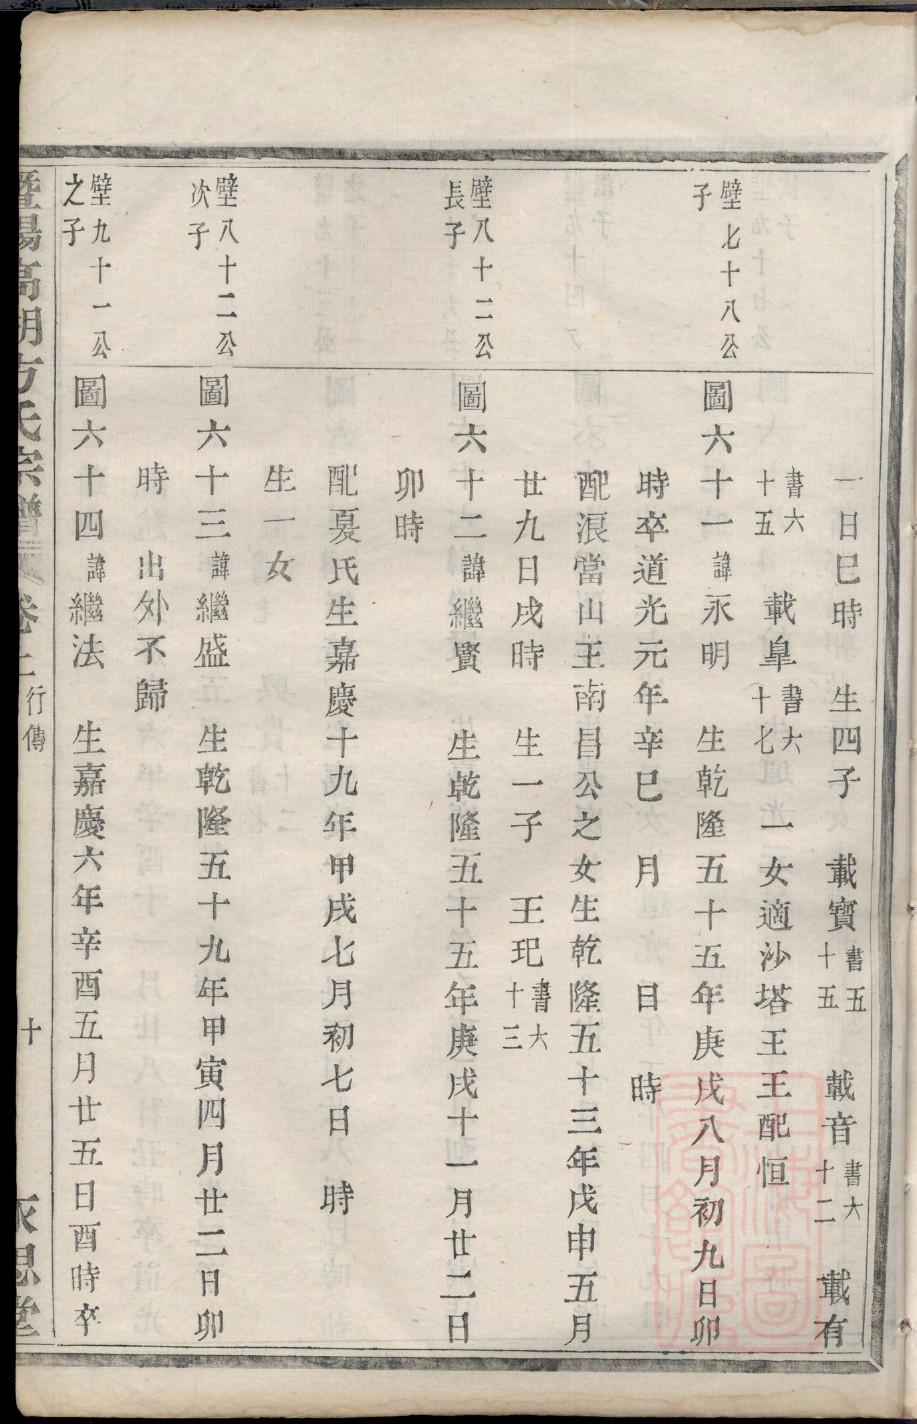 一日巳時　生四子　載寶書五十五　載音書六十二　載有
書六十五　載皐書六十七　一女適沙塔王王配恒
壁七十八公子
圖六十一諱永明　生乾隆五十五年庚戌八月初九日卯
時卒道光元年辛巳　月　日　時
配浪當山王南昌公之女生乾隆五十三年戊申五月
廿九日戌時　生一子　王玘書六十三
壁八十二公長子
圖六十二諱繼賢　生乾隆五十五年庚戌十一月廿二日
卯時
配夏氏生嘉慶十九年甲戌七月初七日　時
生一女
壁八十二公次子
圖六十三諱繼盛　生乾隆五十九年甲寅四月廿二日卯
時　出外不歸
壁九十一公之子
圖六十四諱繼法　生嘉慶六年辛酉五月廿五日酉時卒
暨陽高湖方氏宗譜　卷　行傳　十　永思堂